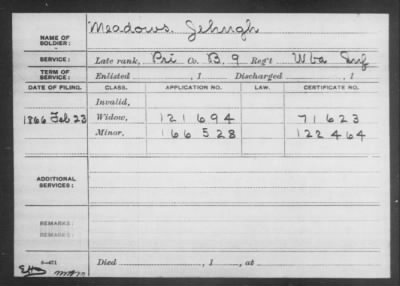 NAME OF SOLDIER: Meadows, Jehugh
SERVICE: Late rank, Pri Co. B, 9 Reg't W Va Inf
TERM OF SERVICE: Enlisted , 1 Discharged , 1
DATE OF FILING. CLASS. APPLICATION NO. LAW. CERTIFICATE NO.
Invalid,
1866 Feb 23 Widow, 121694 71623
Minor, 166528 122464
ADDITIONAL SERVICES:
REMARKS:
REMARKS:
Died , 1 , at